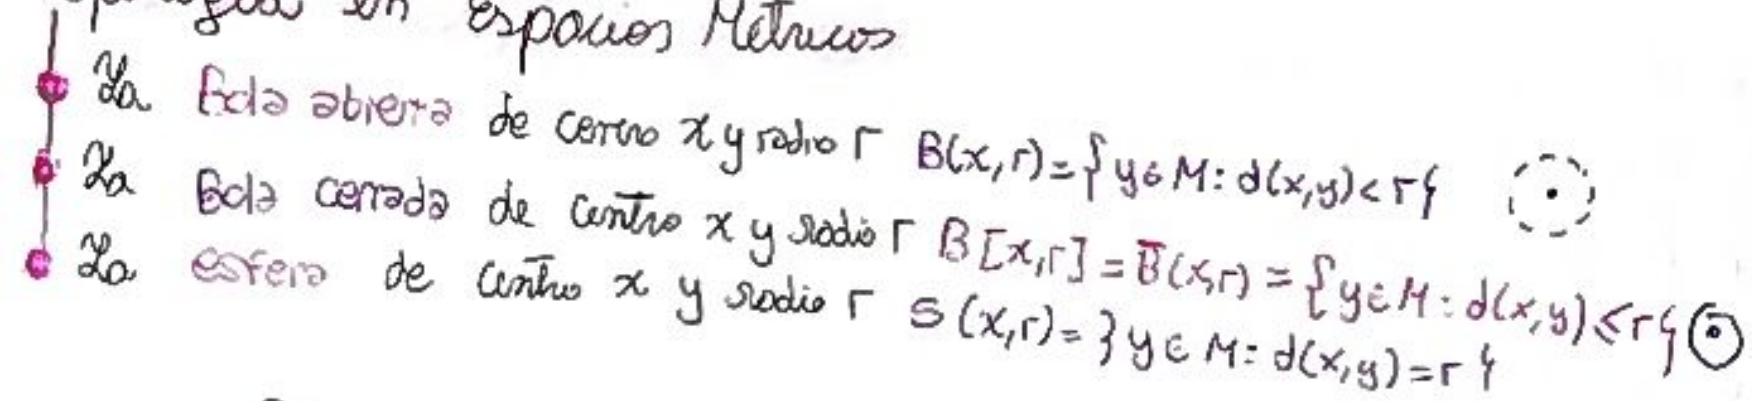 en Espacios Métricos
La Bola abierta de centro x y radio r B(x,r)={y∈M: d(x,y)<r}
La Bola cerrada de centro x y radio r B[x,r]=B̅(x,r)={y∈M: d(x,y)≤r}
La esfera de centro x y radio r S(x,r)={y∈M: d(x,y)=r}